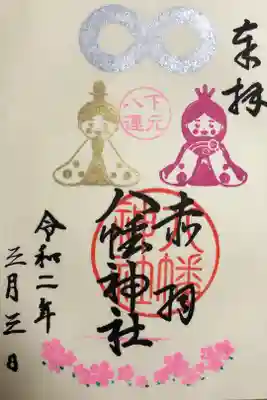 奉拝
下元
八運
赤羽
八幡神社
八幡
令和二年
三月三日